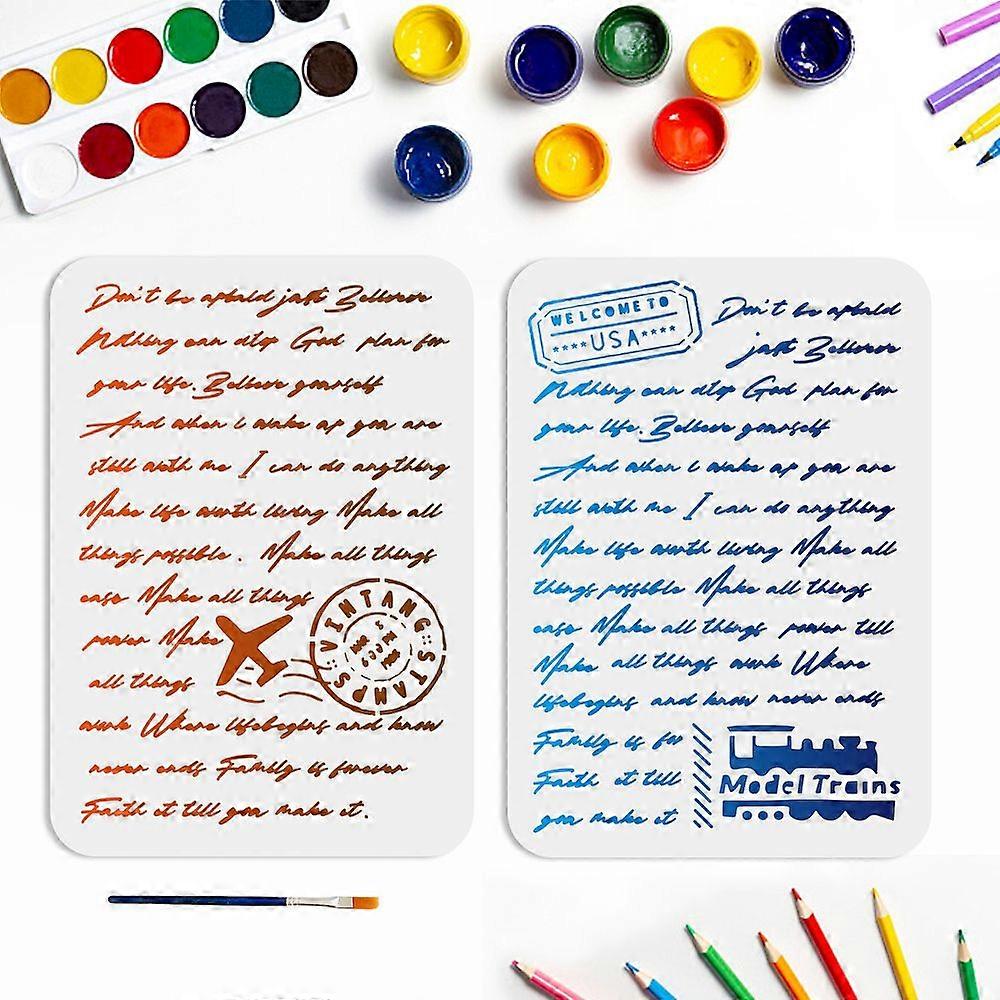 Don't be
Nothing can stop God plan for
your life. Believe yourself
And when i wake up you are
still with me I can do anything
Make life worth living Make all
things possible . Make all things
ease Make all things
power Make
all things
VINTANG STAMPS
work Where lifebegins and know
never ends Family is forever
Faith it till you make it.
WELCOME TO
****USA****
Don't be
Nothing can stop God plan for
your life. Believe yourself
And when i wake up you are
still with me I can do anything
Make life worth living Make all
things possible Make all things
ease Make all things power till
Make all things work Where
lifebegins and know never ends
Family is for
Faith it till
you make it
Model Trains